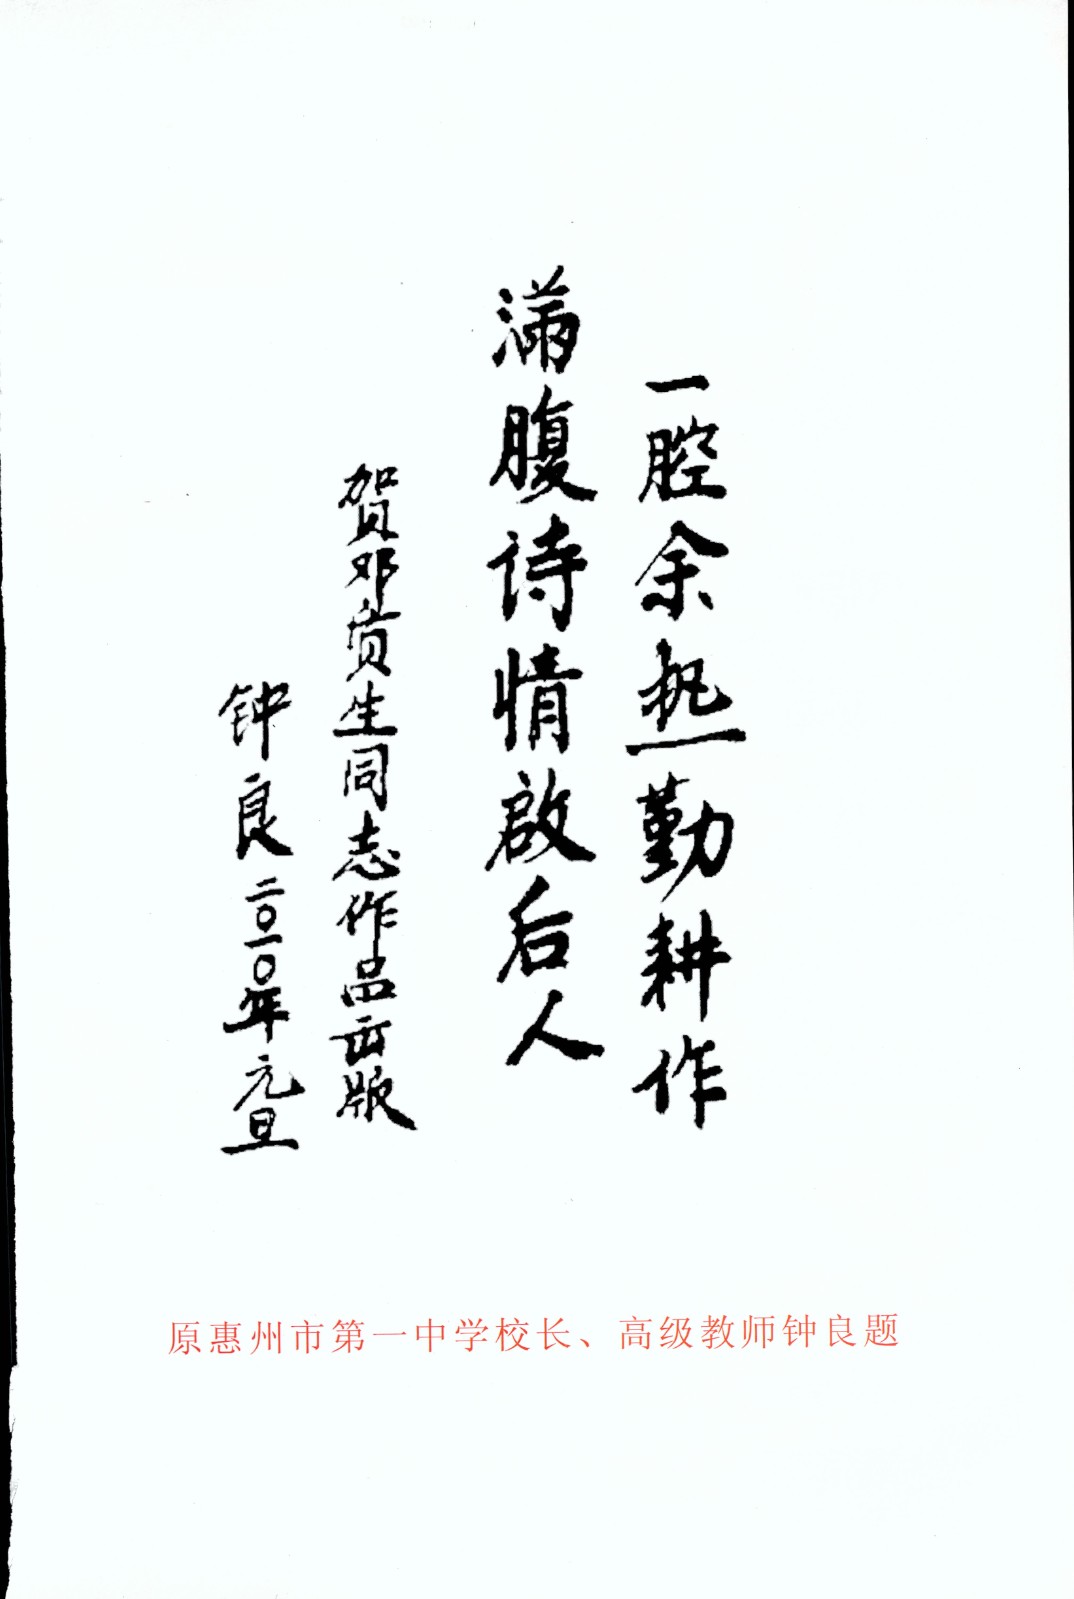 一腔余热勤耕作
满腹诗情啟后人
贺邓赏生同志作品出版
钟良二〇一〇年元旦
原惠州市第一中学校长、高级教师钟良题